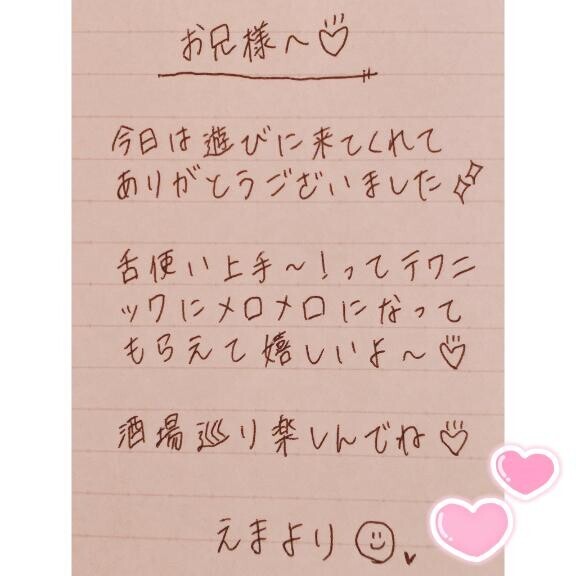 お兄様〜♡
今日は遊びに来てくれて
ありがとうございました
舌使い上手〜!ってテクニ
ックにメロメロになって
もらえて嬉しいよ〜♡
酒場巡り楽しんでね♡
えまより